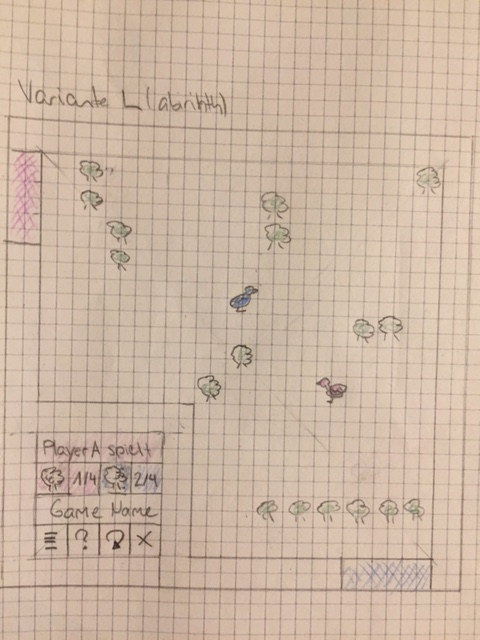 Variante L(abrinth)
Player A spielt
1/4 2/4
Game Name
? X